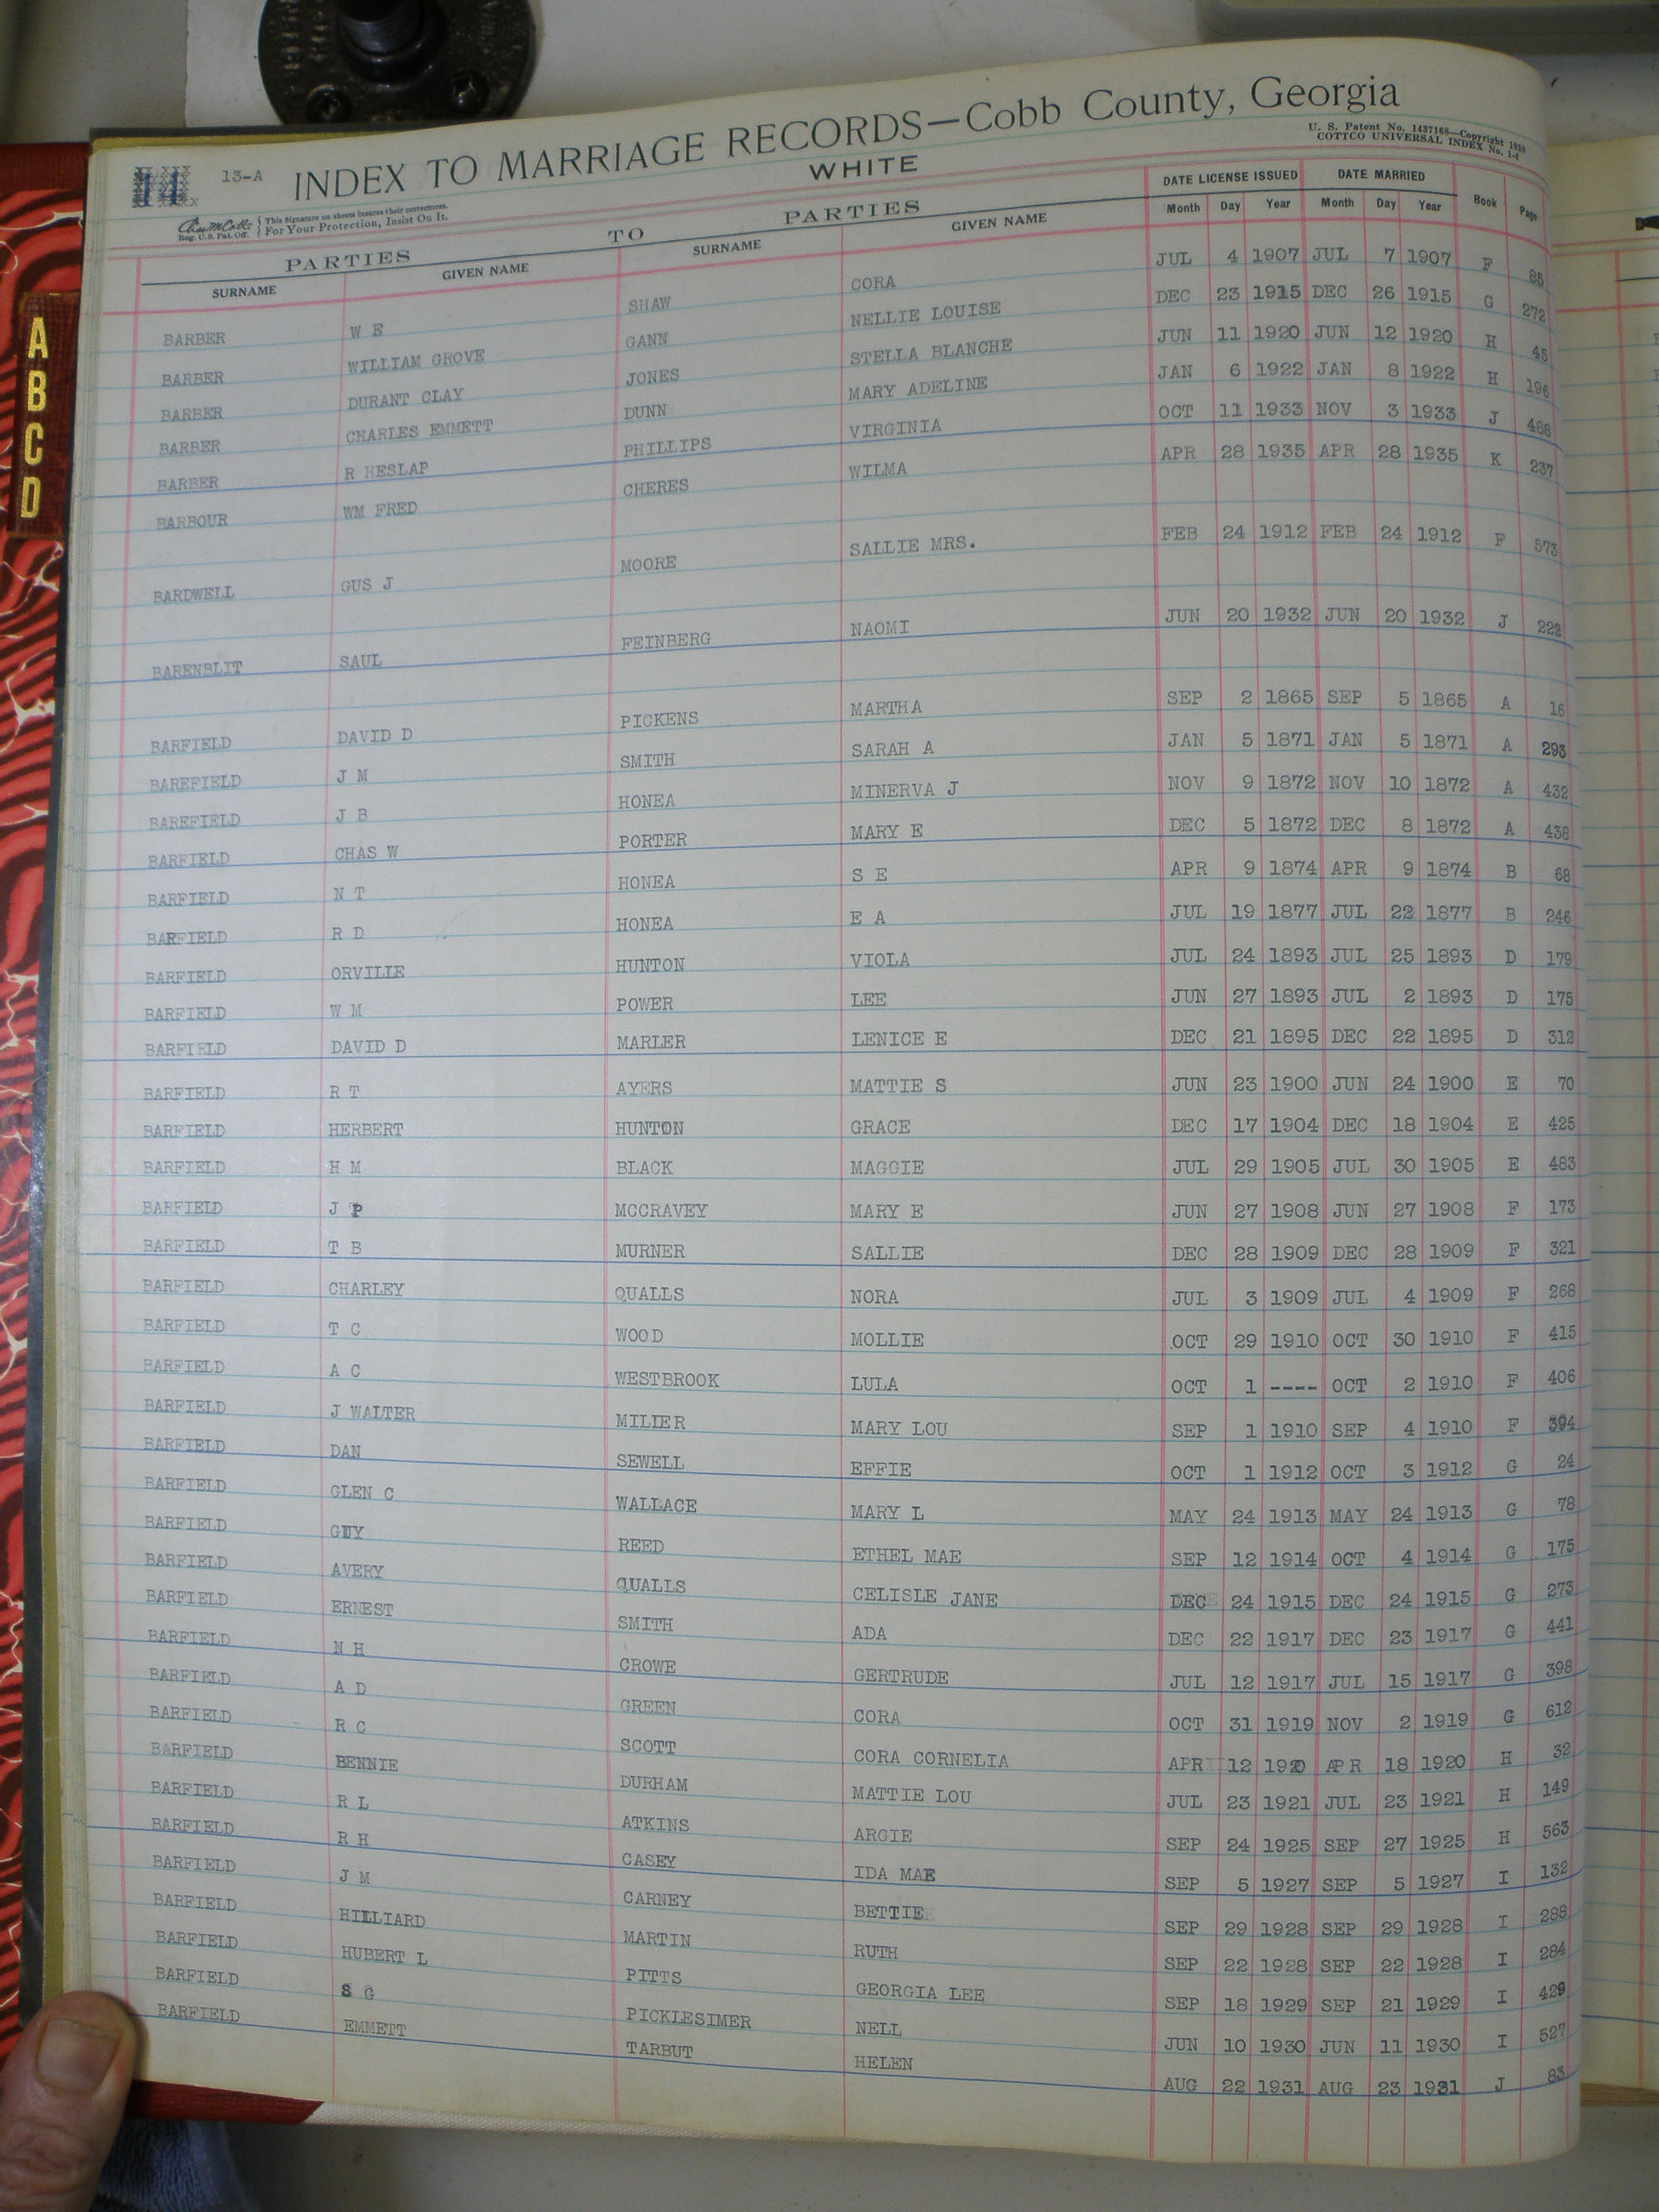 INDEX TO MARRIAGE RECORDS—Cobb County, Georgia
14 13-A
WHITE
U. S. Patent No. 1437168—Copyright 1930
COTTCO UNIVERSAL INDEX No. 1-4
Reg. U.S. Pat. Off. This Signature on sheets insures their correctness.
For Your Protection, Insist On It.
PARTIES TO PARTIES DATE LICENSE ISSUED DATE MARRIED Book Page
SURNAME GIVEN NAME SURNAME GIVEN NAME Month Day Year Month Day Year
BARBER W E SHAW CORA JUL 4 1907 JUL 7 1907 F 85
BARBER WILLIAM GROVE GANN NELLIE LOUISE DEC 23 1915 DEC 26 1915 G 272
BARBER DURANT CLAY JONES STELLA BLANCHE JUN 11 1920 JUN 12 1920 H 45
BARBER CHARLES EMMETT DUNN MARY ADELINE JAN 6 1922 JAN 8 1922 H 196
BARBER R HESLAP PHILLIPS VIRGINIA OCT 11 1933 NOV 3 1933 J 488
BARBOUR WM FRED CHERES WILMA APR 28 1935 APR 28 1935 K 237
BARDWELL GUS J MOORE SALLIE MRS. FEB 24 1912 FEB 24 1912 F 573
BARENBLIT SAUL FEINBERG NAOMI JUN 20 1932 JUN 20 1932 J 222
BARFIELD DAVID D PICKENS MARTHA SEP 2 1865 SEP 5 1865 A 16
BAREFIELD J M SMITH SARAH A JAN 5 1871 JAN 5 1871 A 293
BAREFIELD J B HONEA MINERVA J NOV 9 1872 NOV 10 1872 A 432
BARFIELD CHAS W PORTER MARY E DEC 5 1872 DEC 8 1872 A 438
BARFIELD N T HONEA S E APR 9 1874 APR 9 1874 B 68
BARFIELD R D HONEA E A JUL 19 1877 JUL 22 1877 B 246
BARFIELD ORVILLE HUNTON VIOLA JUL 24 1893 JUL 25 1893 D 179
BARFIELD W M POWER LEE JUN 27 1893 JUL 2 1893 D 175
BARFIELD DAVID D MARLER LENICE E DEC 21 1895 DEC 22 1895 D 312
BARFIELD R T AYERS MATTIE S JUN 23 1900 JUN 24 1900 E 70
BARFIELD HERBERT HUNTON GRACE DEC 17 1904 DEC 18 1904 E 425
BARFIELD H M BLACK MAGGIE JUL 29 1905 JUL 30 1905 E 483
BARFIELD J P MCCRAVEY MARY E JUN 27 1908 JUN 27 1908 F 173
BARFIELD T B MURNER SALLIE DEC 28 1909 DEC 28 1909 F 321
BARFIELD CHARLEY QUALLS NORA JUL 3 1909 JUL 4 1909 F 268
BARFIELD T C WOOD MOLLIE OCT 29 1910 OCT 30 1910 F 415
BARFIELD A C WESTBROOK LULA OCT 1 ---- OCT 2 1910 F 406
BARFIELD J WALTER MILLER MARY LOU SEP 1 1910 SEP 4 1910 F 394
BARFIELD DAN SEWELL EFFIE OCT 1 1912 OCT 3 1912 G 24
BARFIELD GLEN C WALLACE MARY L MAY 24 1913 MAY 24 1913 G 78
BARFIELD GUY REED ETHEL MAE SEP 12 1914 OCT 4 1914 G 175
BARFIELD AVERY QUALLS CELISLE JANE DEC 24 1915 DEC 24 1915 G 273
BARFIELD ERNEST SMITH ADA DEC 22 1917 DEC 23 1917 G 441
BARFIELD N H CROWE GERTRUDE JUL 12 1917 JUL 15 1917 G 398
BARFIELD A D GREEN CORA OCT 31 1919 NOV 2 1919 G 612
BARFIELD R C SCOTT CORA CORNELIA APR 12 1920 APR 18 1920 H 32
BARFIELD BENNIE DURHAM MATTIE LOU JUL 23 1921 JUL 23 1921 H 149
BARFIELD R L ATKINS ARGIE SEP 24 1925 SEP 27 1925 H 563
BARFIELD R H CASEY IDA MAE SEP 5 1927 SEP 5 1927 I 132
BARFIELD J M CARNEY BETTIE SEP 29 1928 SEP 29 1928 I 288
BARFIELD HILLIARD MARTIN RUTH SEP 22 1928 SEP 22 1928 I 284
BARFIELD HUBERT L PITTS GEORGIA LEE SEP 18 1929 SEP 21 1929 I 429
BARFIELD S G PICKLESIMER NELL JUN 10 1930 JUN 11 1930 I 527
BARFIELD EMMETT TARBUT HELEN AUG 22 1931 AUG 23 1931 J 83
A
B
C
D